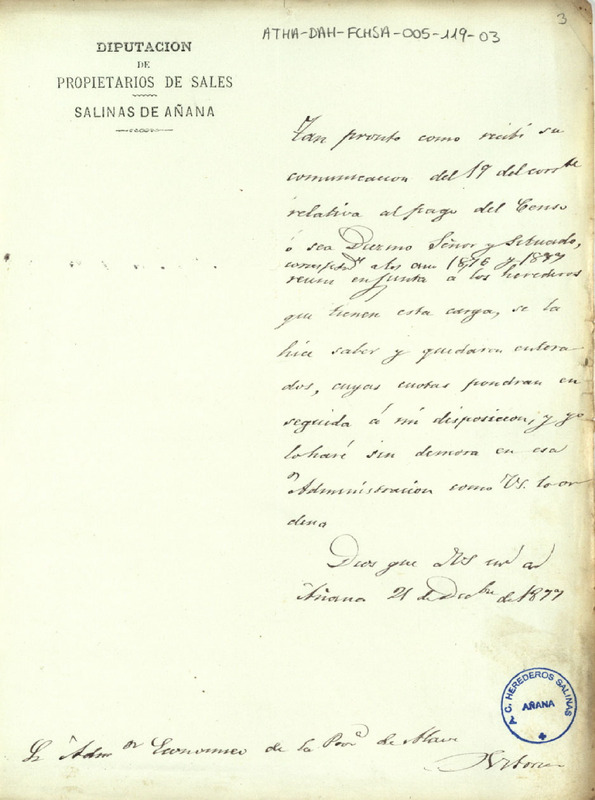 3
ATHA-DAH-FCHSA-005-119-03
DIPUTACION
DE
PROPIETARIOS DE SALES
SALINAS DE AÑANA
Tan pronto como recibí su
comunicacion del 19 del corrte
relativa al pago del Censo
ó sea Diezmo Señor y Situado,
a los 1876 y 1877
reuní en junta á los herederos
que tienen esta carga, se la
hice saber y quedaron entera
dos, cuyas cuotas pondran en
seguida á mi disposicion, y yo
lo haré sin demora en esa
Administracion como VS. lo or
dena
Dios gue á VS
Añana 21 de Dbre de 1877
A. C. HEREDEROS SALINAS
AÑANA
Sr Admor Economico de la Prova de Alava
Vitoria